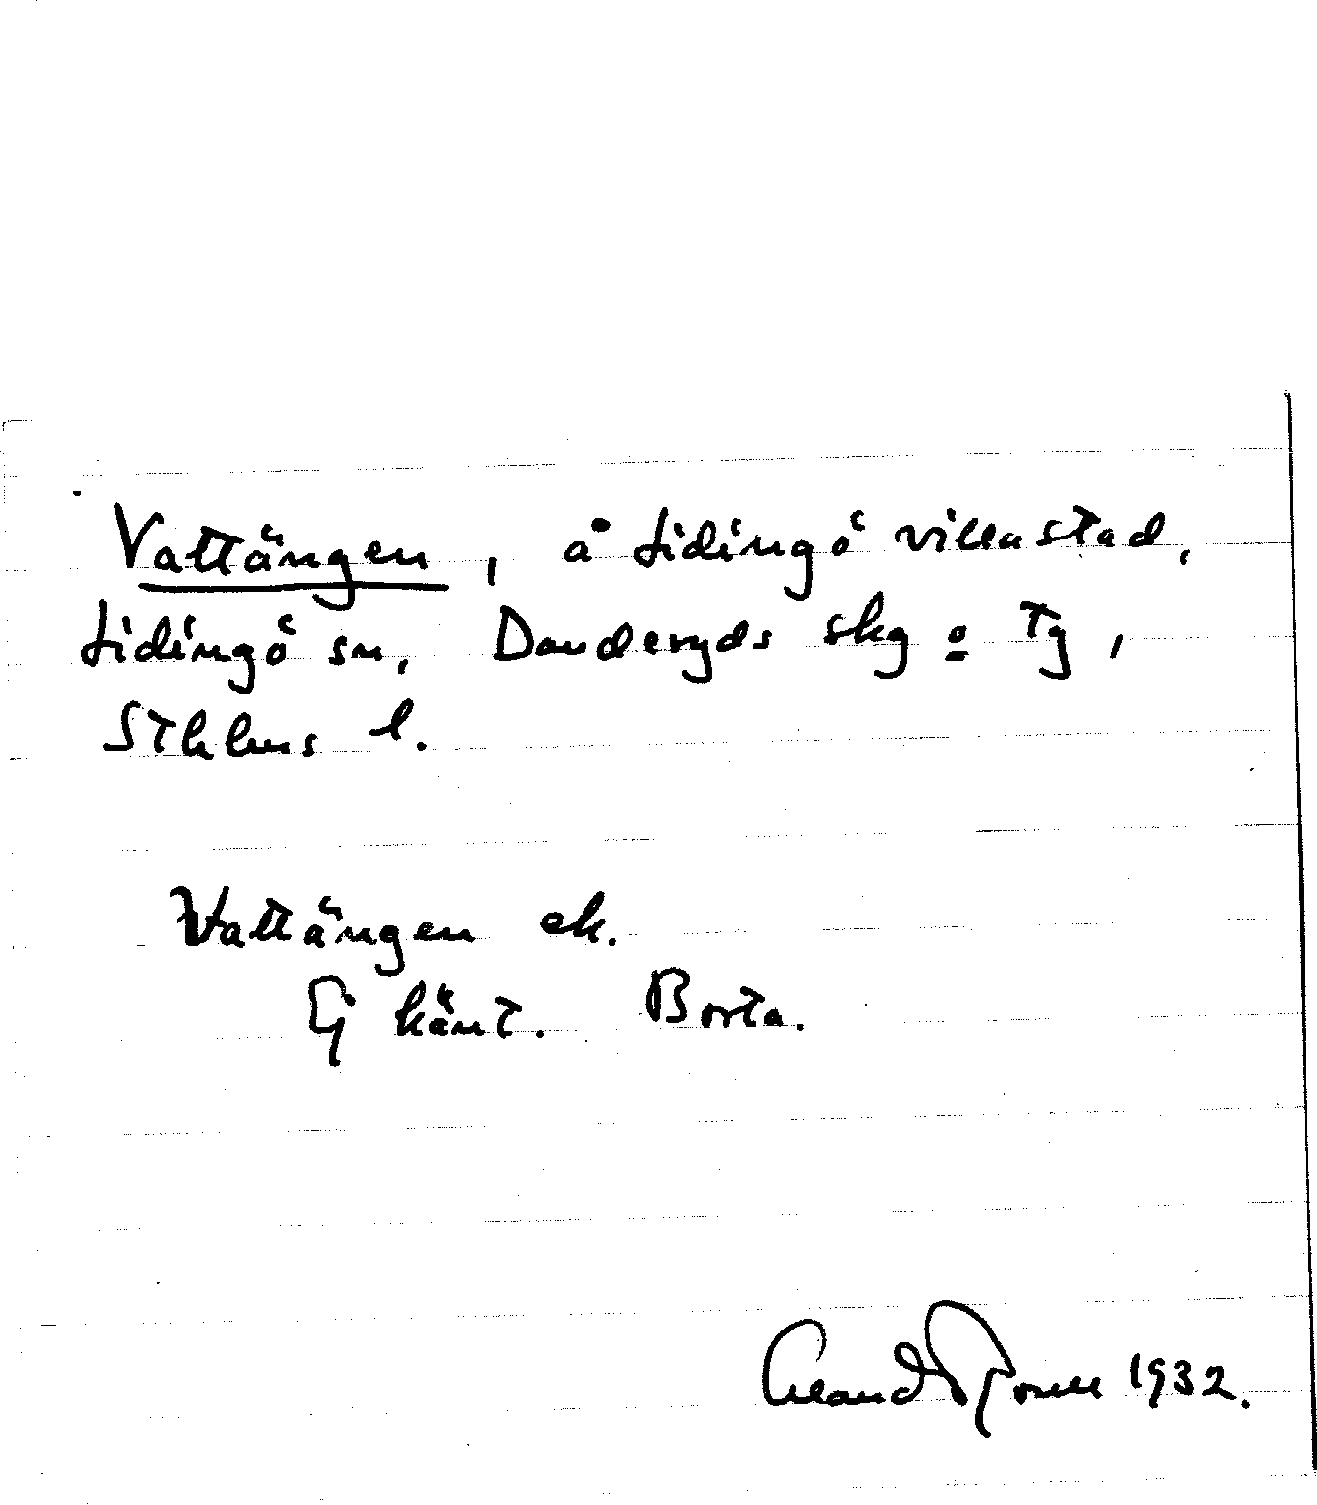 Vattängen, å Lidingö villastad,
Lidingö sn, Danderyds skg o Tg,
Sthlms l.
Vattängen ek.
Ej känt. Borta.
1932.